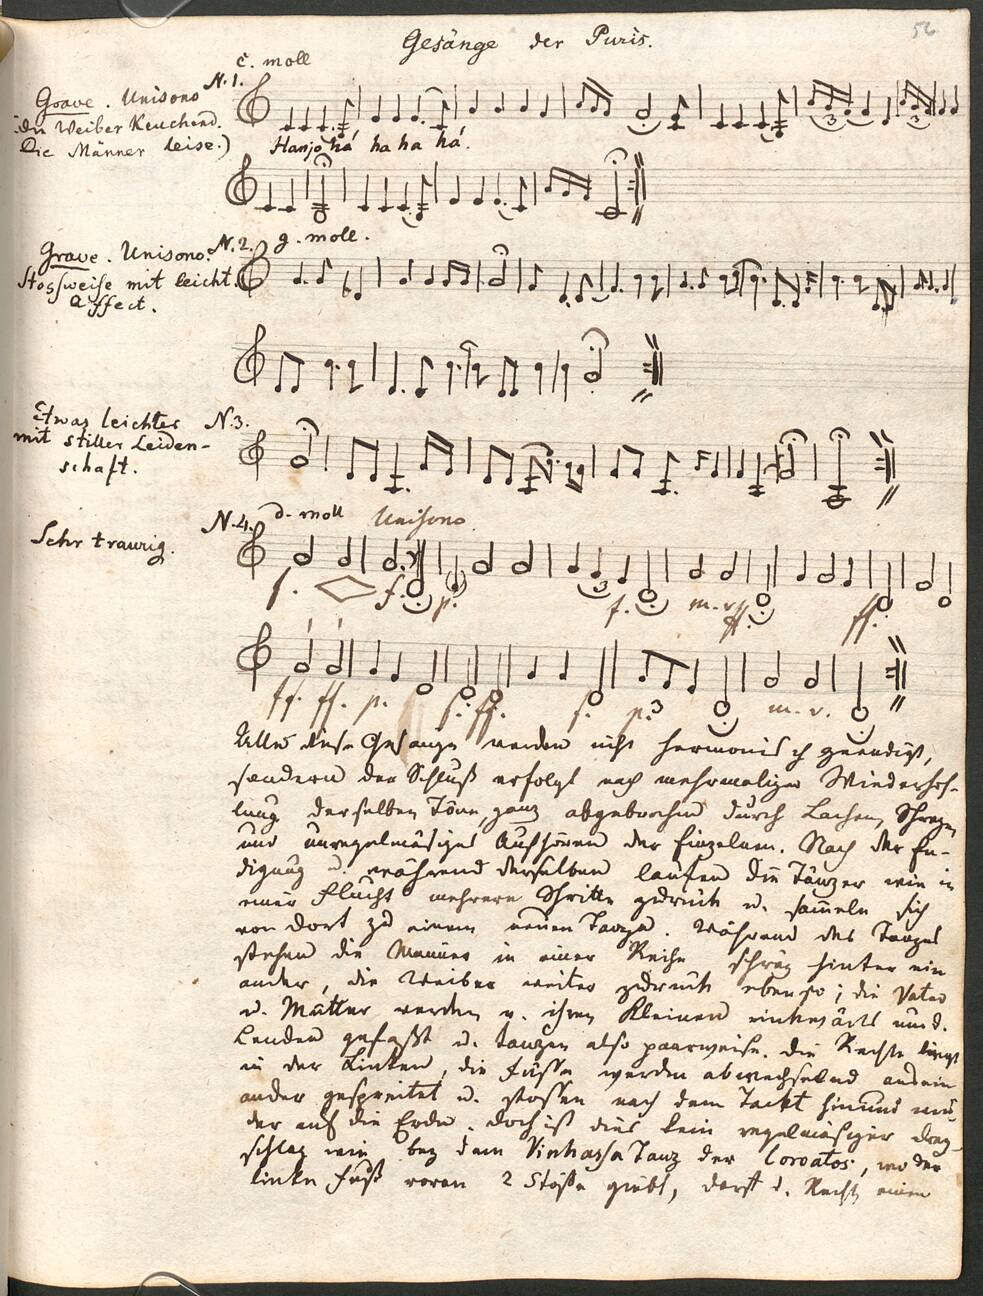 56
Gesänge der Puris.
c. moll
N. 1.
Grave. Unisono
die Weiber Keuchend.
Die Männer leise.)
Hanjo há ha ha há.
N. 2. g. moll.
Grave. Unisono.
Stossweise mit leicht.
Affect.
N. 3.
Etwas leichter
mit stiller Leiden-
schaft.
N. 4. d. moll Unisono
Sehr traurig.
f. f. p. f. m. v. ff. ff.
3
ff. ff. p. f. ff. f. p. 3 m. v.
Alle diese Gesänge werden nicht harmonisch geendigt,
sondern der Schluß erfolgt nach mehrmaliger Wiederhoh-
lung derselben Töne, ganz abgebrochen durch Lachen, Schreyen
und unregelmäsiges Aufhören der Einzelnen. Nach der En-
digung u. während derselben laufen die Tänzer wie in
einer Flucht mehrere Schritte zurück u. sammeln sich
von dort zu einem neuen Tanze. Während des Tanzes
stehen die Männer in einer Reihe schräg hinter ein
ander, die Weiber weiter zurück ebenso; die Väter
u. Mütter werden v. ihren Kleinen rückwärts um d.
Lenden gefasst u. tanzen also paarweise. Die Rechte liegt
in der Linken, die Füsse werden abwechselnd ausein
ander gespreitet u. stossen nach dem Tackt hin und wie
der auf die Erde. Doch ist dies kein regelmäsiger
schlag wie bey dem Tanz der Coroatos, wo der
linke Fuß voran 2 Stöße giebt, darauf d. Rechte einen